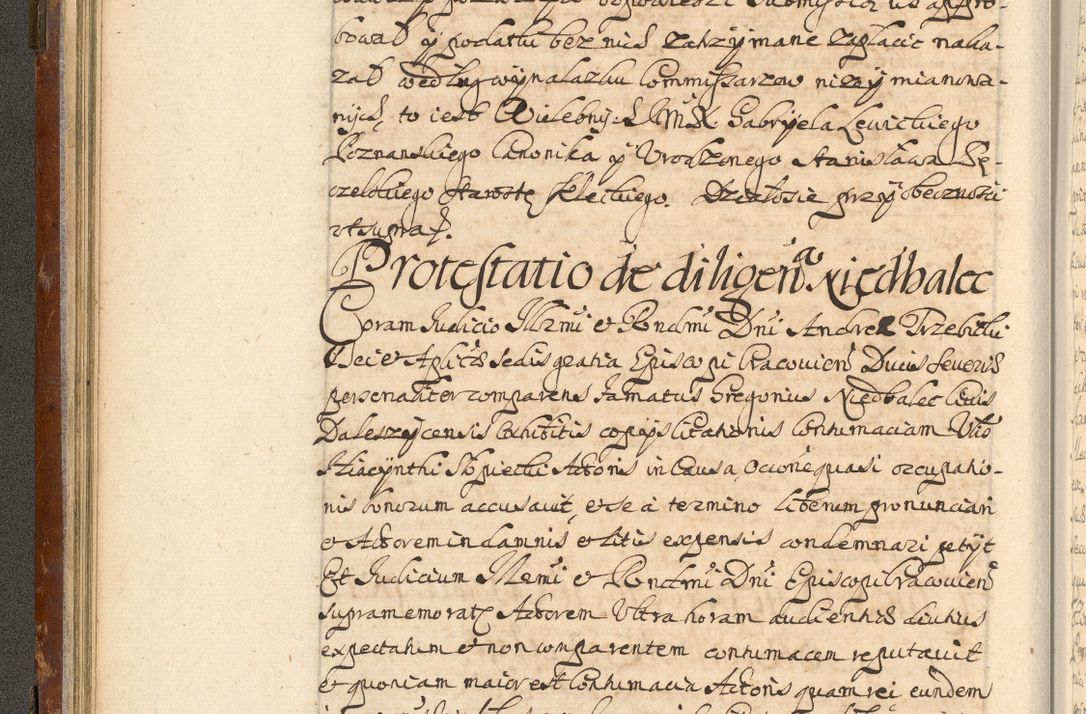 bował y podatku bez nich zatrzymane zapłacić naka-
zał według wynalazku Commissarzow niżey mianowa-
nych, to iest Wielebny. X. Gabryela Lewickiego
Poznanskiego Canonika y Urodzonego Stanisława Pę-
czelskiego Starostę Działosie przy obecznosci
ut supra.
Protestatio de diligena Niedbalec
Coram Judicio Illmi et Rndmi Dni Andreæ Trzebicki
Dei et Aplicæ sedis gratia Episcopi Cracouien Ducis Seueriæ
personaliter comparens famatus Gregorius Niedbalec Ciuis
Daleszycensis exhibitis copijs citationis contumaciam
Hiacynthi Actoris in Causa, Occõne quasi occupatio-
nis bonorum accusauit, et se a termino liberum pronunciari
et Actorem in damnis et litis expensis condemnari petijt
Et Judicium Illmi et Rndmi Dni Episcopi Cracouien
supramemorat Actorem Ultra horam audientiæ diutius
expectatum et non comparentem contumacem reputauit
et quoniam maior est Contumacia Actoris quam rei eundem